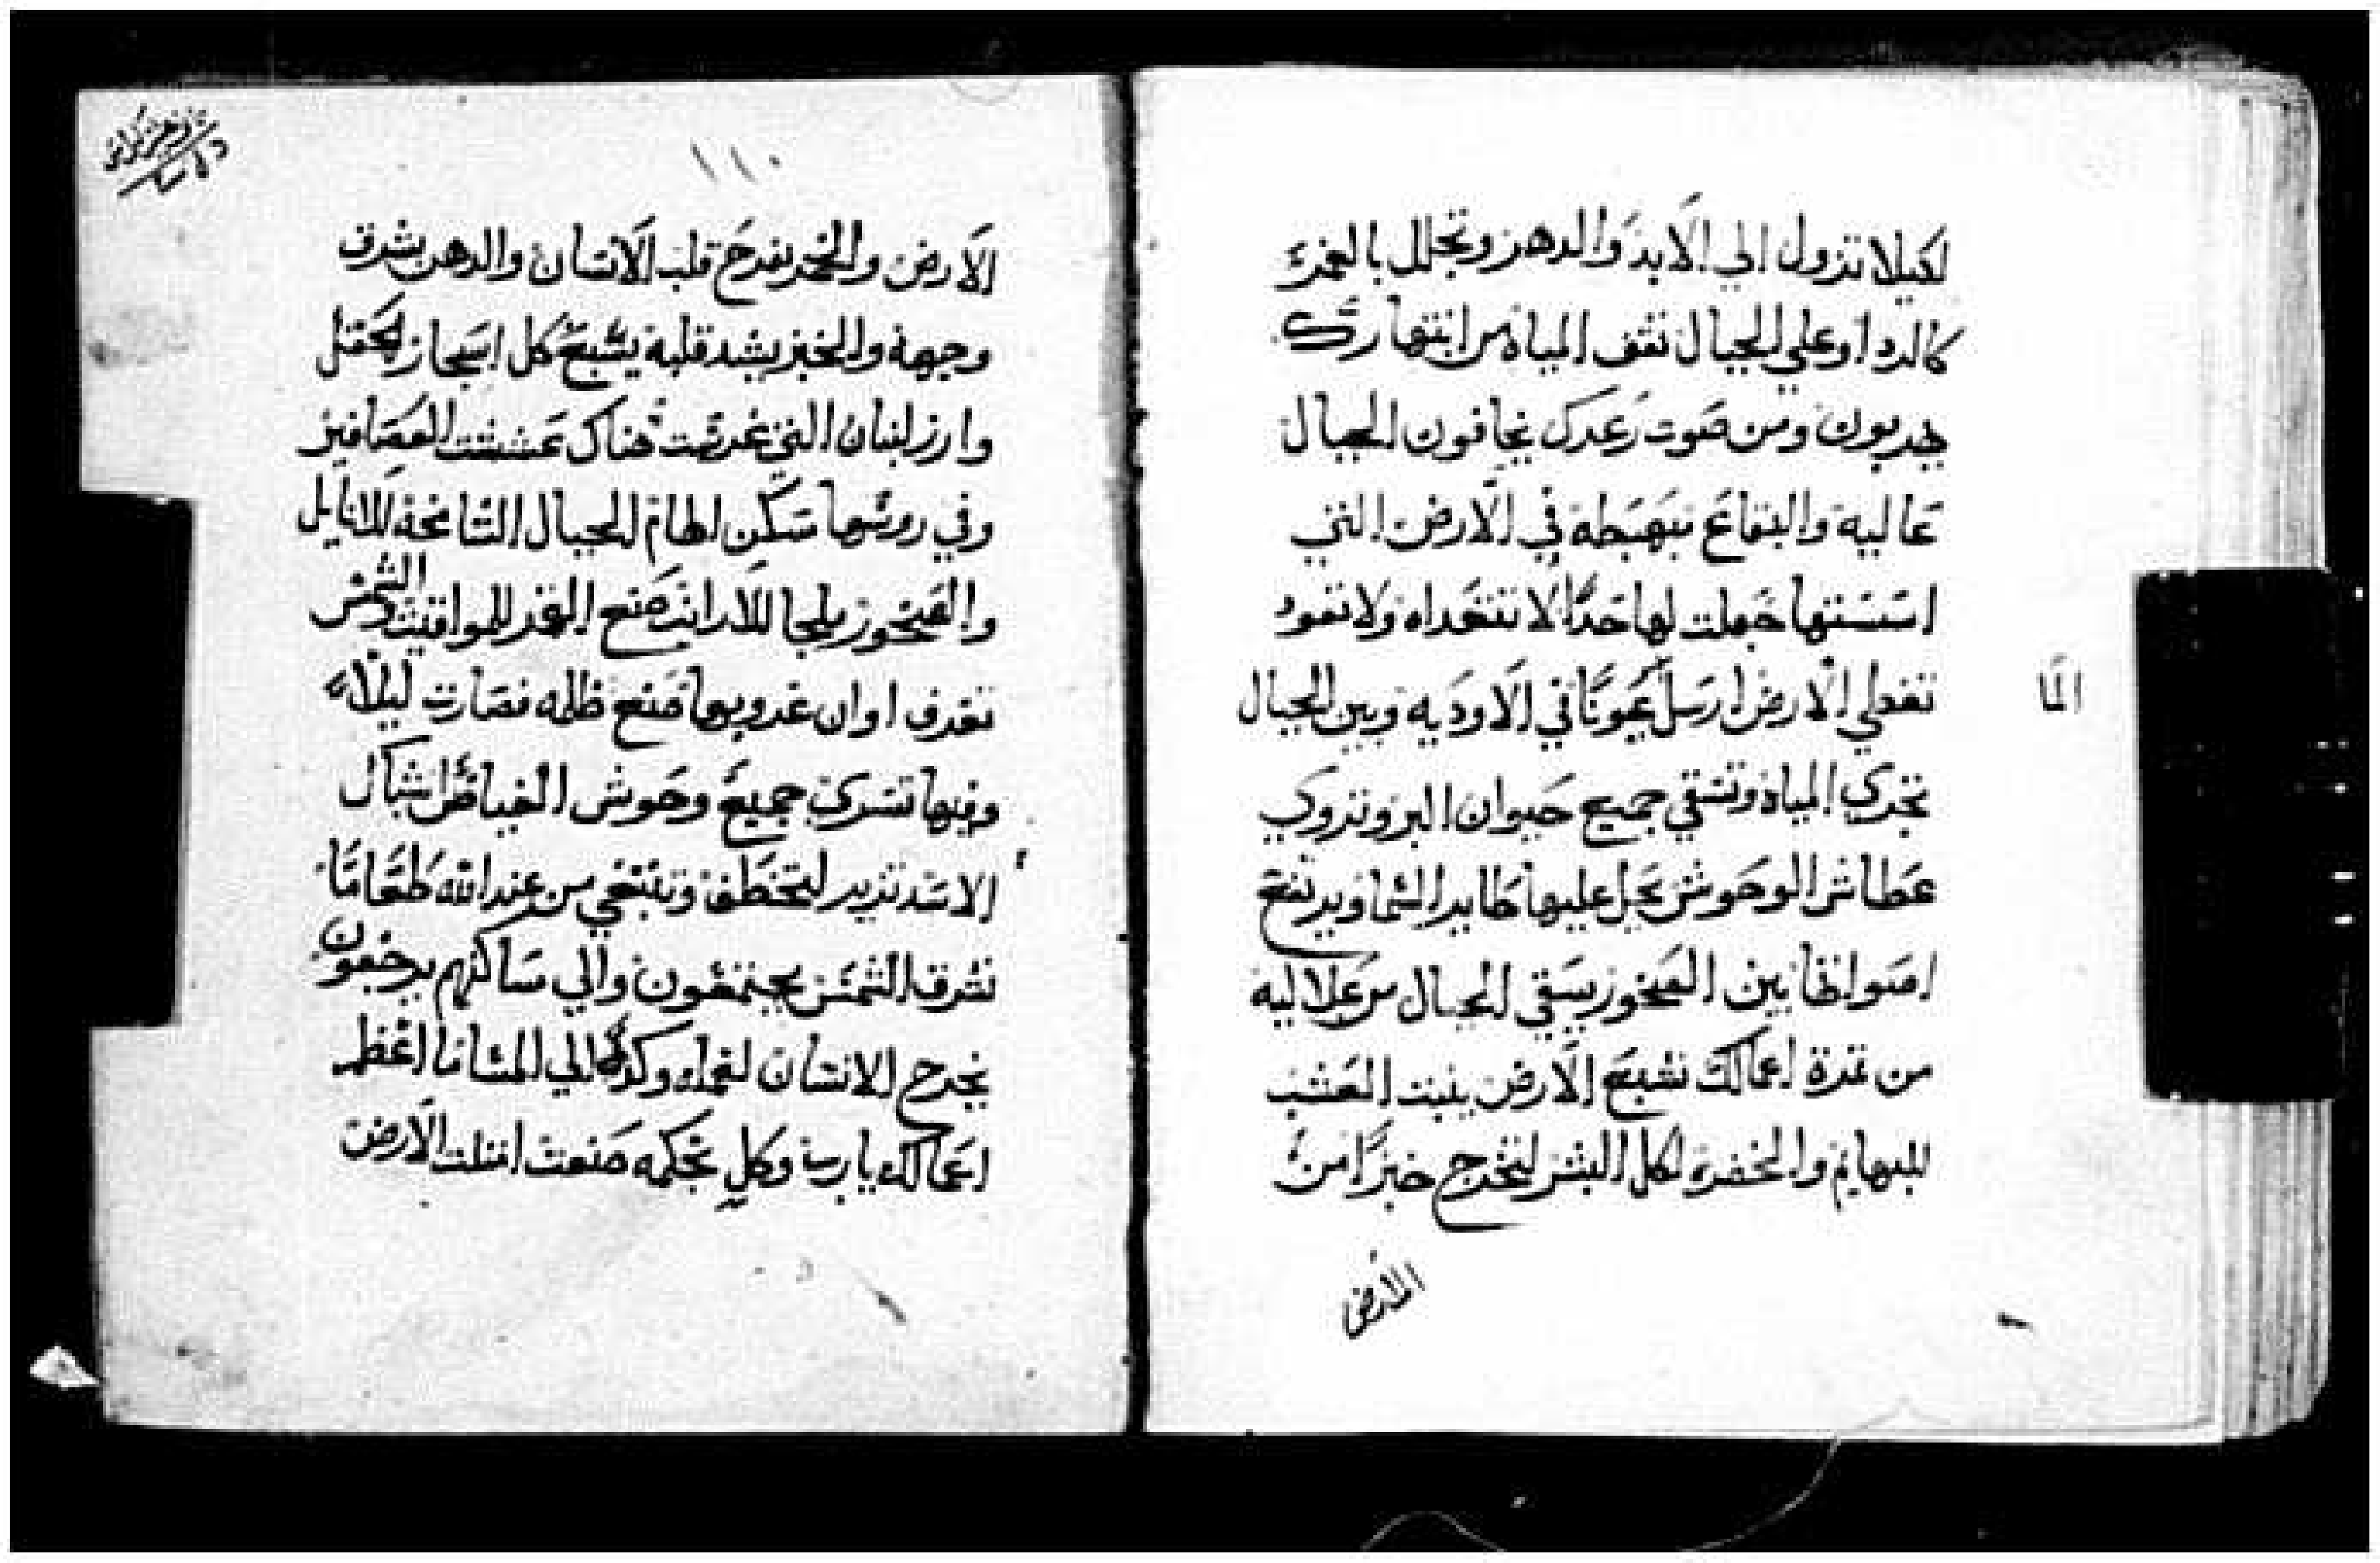 لكيلا تزول الي الابد والدهر وتجلل بالغمر
كالردا وعلي الجبال تقف المياه من انتهارك
يهربون ومن صوت رعدك يخافون الجبال
عاليه والبقاع مبهبطه في الارض التي
اسستها جعلت لها حدًا لا تتعداه ولا تعود
تغطي الارض ارسل عيونًا في الاوديه وبين الجبال
الما
تجري المياه وتسقي جميع حيوان البر وتروي
عطاش الوحوش يحل عليها طاير السما ويرتفع
اصواتها بين الصخور يسقي الجبال من علاليه
من ثمرة اعمالك تشبع الارض ينبت العشب
للبهايم والخضرة لكل البشر لتخرج خبزًا من
الارض
١١٠
الارض والخمر يفرح قلب الانسان والدهن يشرق
وجهه والخبز يشد قلبه يشبع كل اسجار الحقل
وارز لبنان التي غرست هناك عششت العصافير
وفي روسها تسكن الهام الجبال الشامخة للايايل
والصخور ملجا للارانب صنع القمر للمواقيت والشمس
تعرف اوان غروبها صنع ظلمه فصارت ليلا
وفيها تسري جميع وحوش الغياض اشبال
الاسد تزير لتخطف وتبتغي من عند الله طعامًا
تشرق الشمس يجتمعون والي مساكنهم يرجعون
يخرج الانسان لعمله وكده الي المسا ما اعظم
اعمالك يا رب وكل بحكمه صنعت امتلت الارض